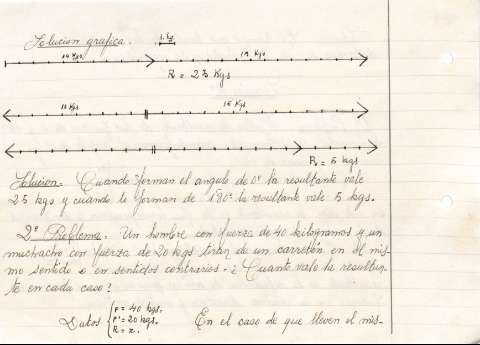 Solucion grafica. 1 kg
10 Kgs 15 Kgs
R = 25 Kgs
10 Kgs 15 Kgs
R = 5 kgs
Solucion.- Cuando forman el angulo de 0º la resultante vale
25 kgs y cuando le forman de 180º la resultante vale 5 kgs.
2º Problema. Un hombre con fuerza de 40 kilogramos y un
muchacho con fuerza de 20 kgs tiran de un carretón en el mis-
mo sentido o en sentidos contrarios. ¿Cuanto vale la resultan-
te en cada caso?
Datos F = 40 kgs.
F' = 20 kgs.
R = x.
En el caso de que lleven el mis-